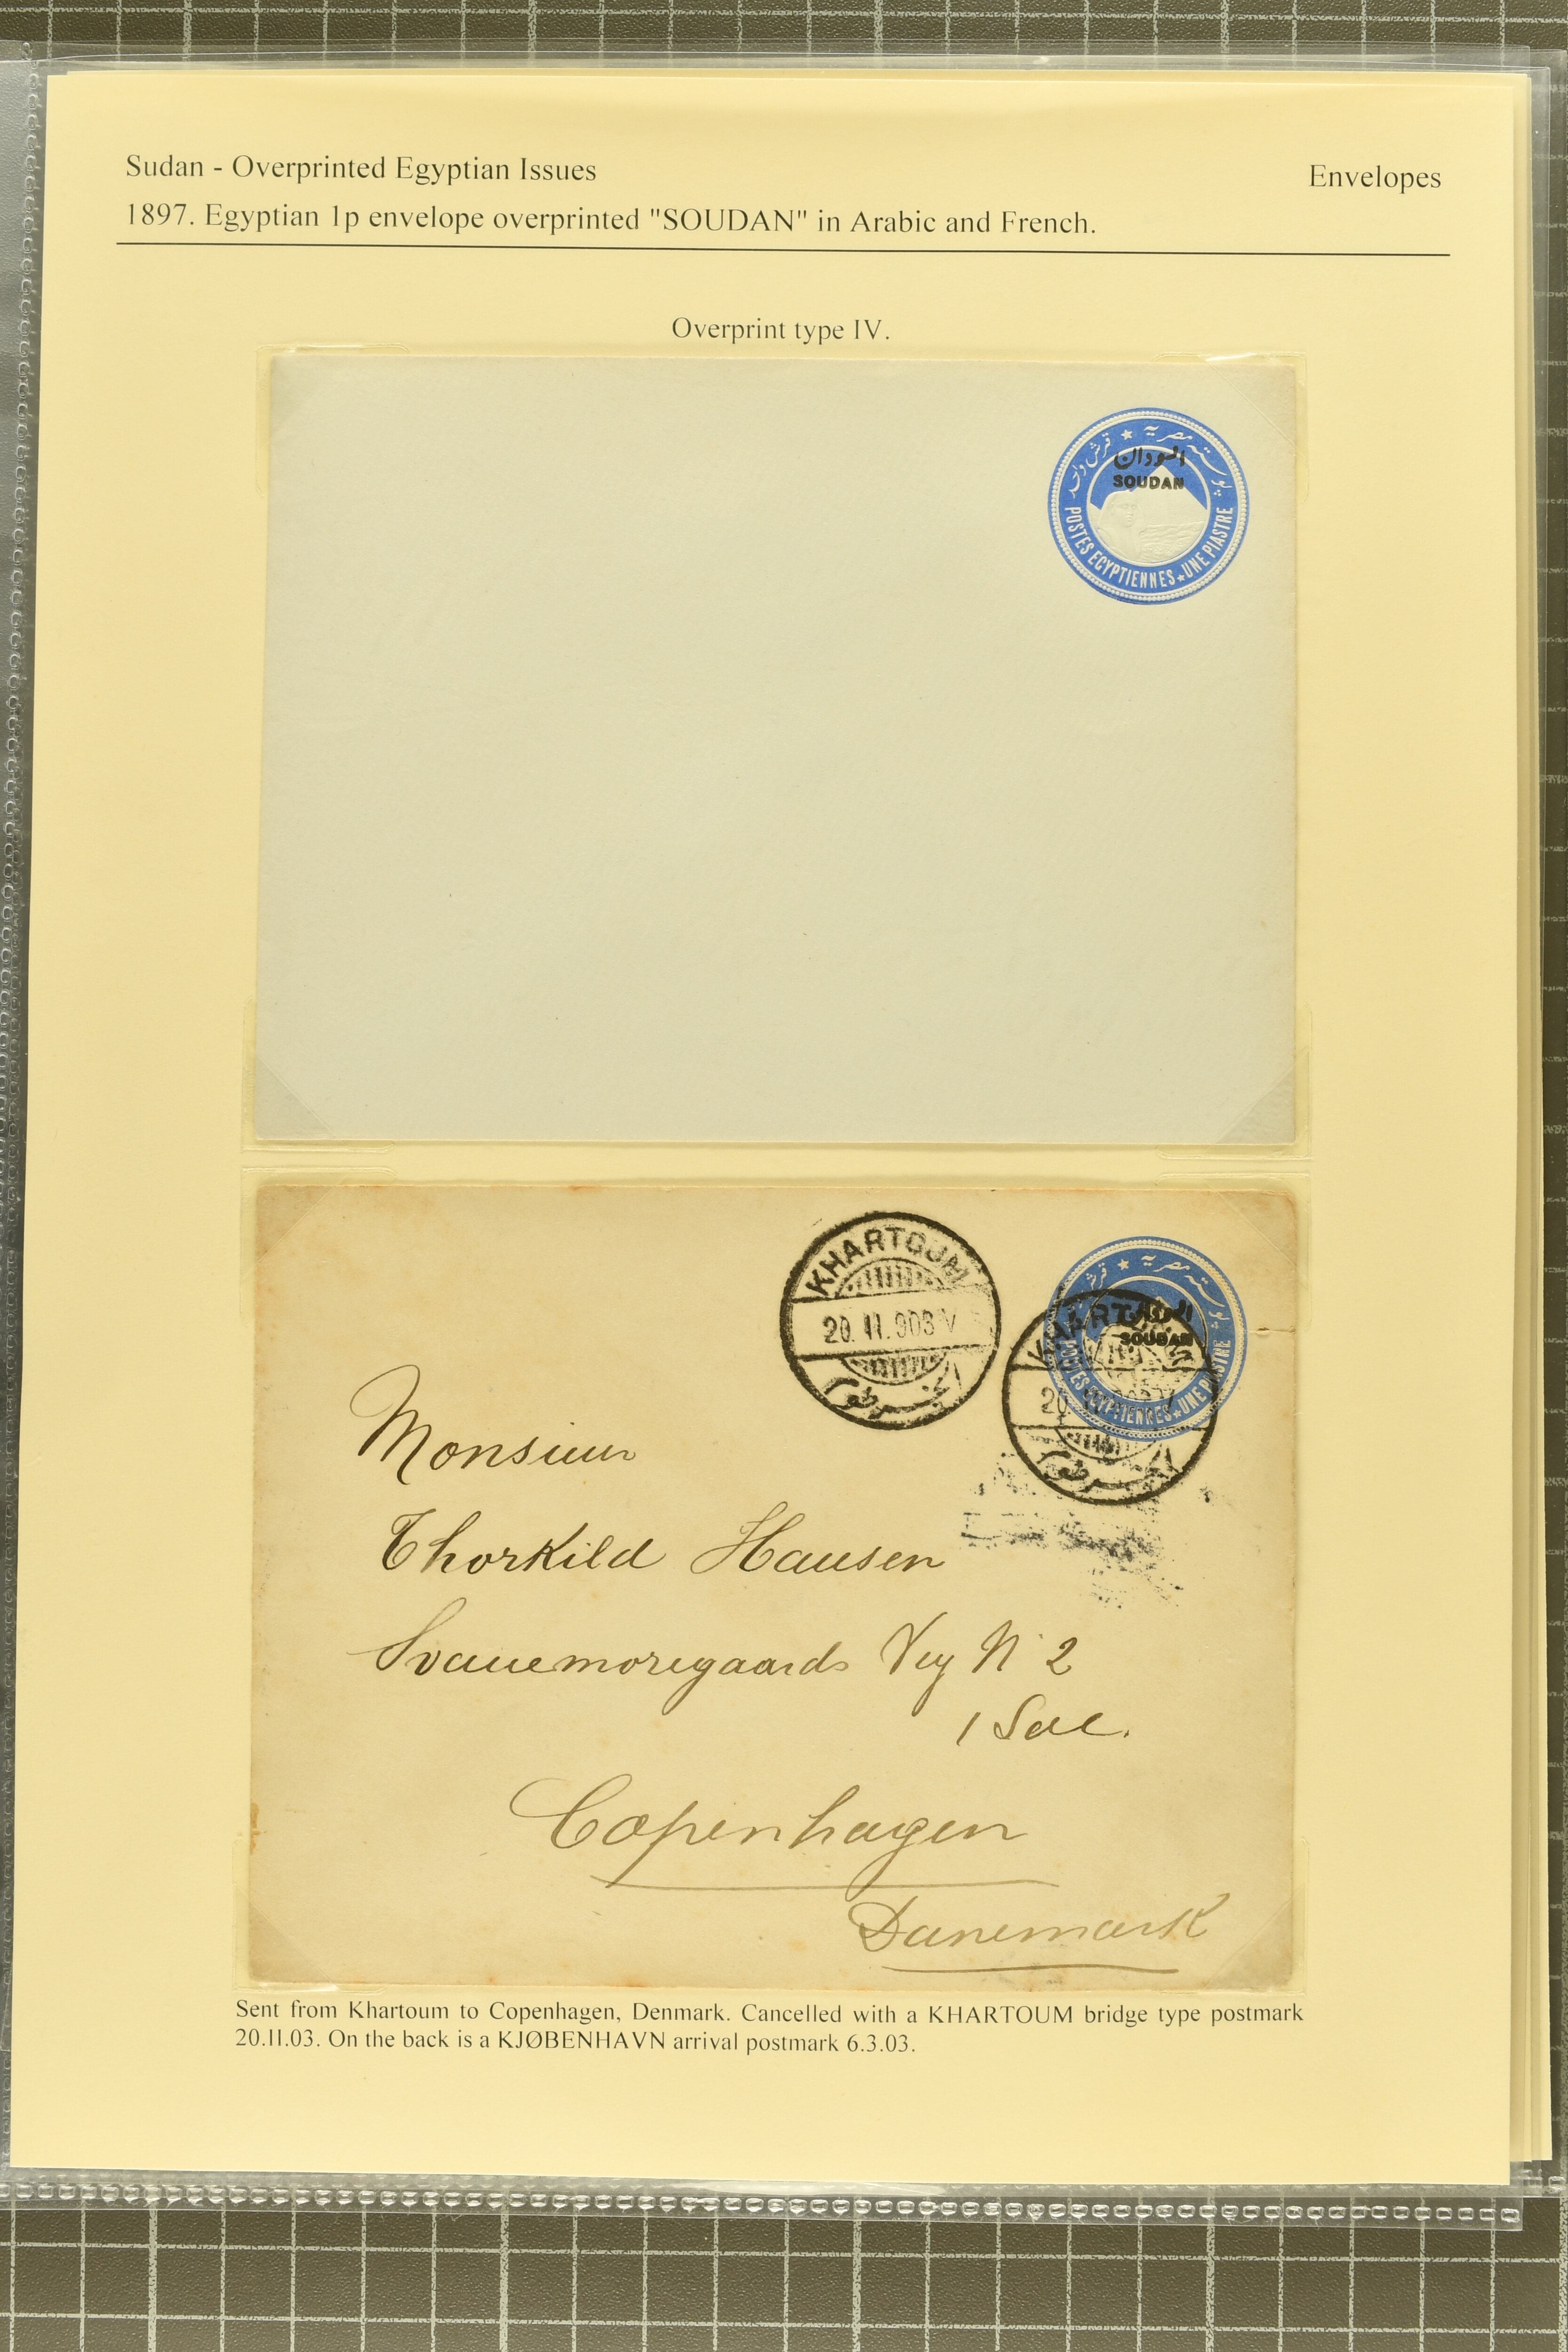 Sudan - Overprinted Egyptian Issues
Envelopes
1897. Egyptian 1p envelope overprinted "SOUDAN" in Arabic and French.
Overprint type IV.
بوستة مصرية ★ قرش واحد
السودان
SOUDAN
POSTES EGYPTIENNES ★ UNE PIASTRE
KHARTOUM
20. II. 903 V
الخرطوم
بوستة مصرية ★ قرش
SOUDAN
POSTES EGYPTIENNES ★ UNE PIASTRE
KHARTOUM
20
الخرطوم
Monsieur
Thorkild Hansen
Svanemosegaards Vej N 2
1 Sal.
Copenhagen
Danemark
Sent from Khartoum to Copenhagen, Denmark. Cancelled with a KHARTOUM bridge type postmark
20.II.03. On the back is a KJØBENHAVN arrival postmark 6.3.03.